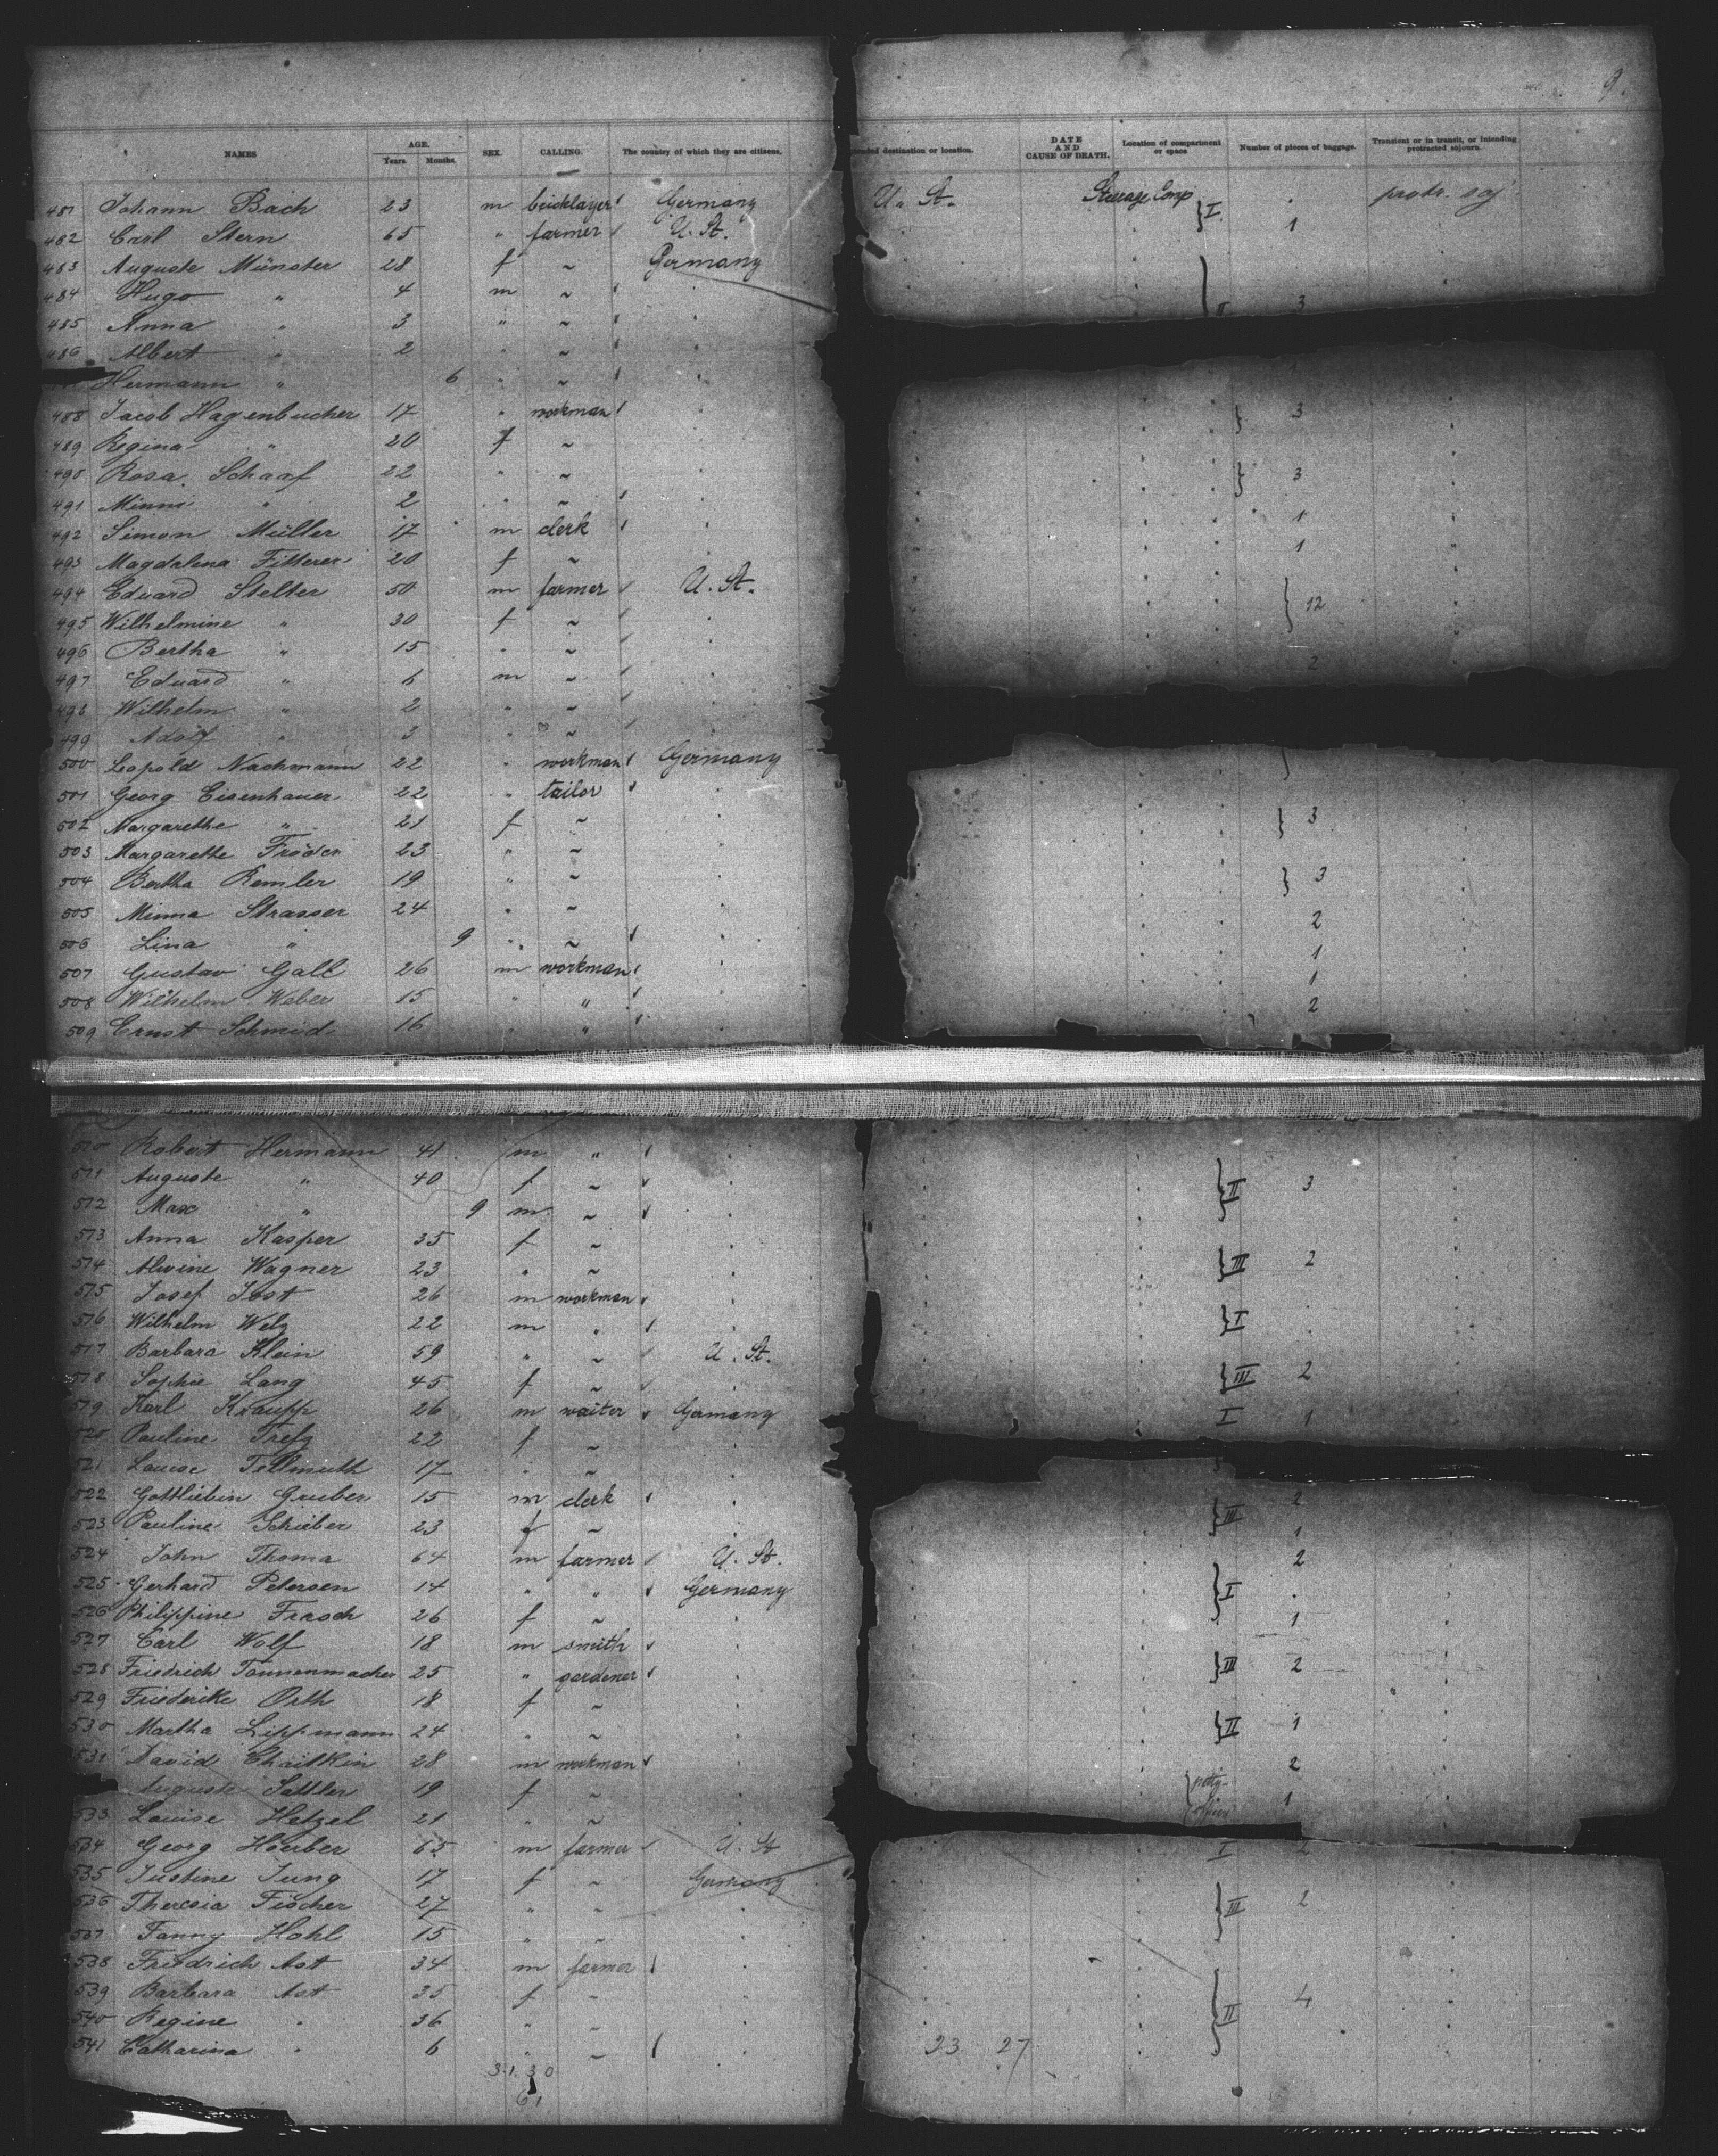 9.
NAMES AGE. Years. Months. SEX. CALLING. The country of which they are citizens. Intended destination or location. DATE AND CAUSE OF DEATH. Location of compartment or space Number of pieces of baggage. Transient or in transit, or intending protracted sojourn.
481 Johann Bach 23 m bricklayer Germany U. St. Steerage Comp I protr. soj.
482 Carl Stern 65 " farmer U. St. 1
483 Auguste Münster 28 f ~ Germany
484 Hugo " 4 m ~ II 3
485 Anna " 3 " ~
486 Albert " 2 " ~
Hermann " 6 " ~
488 Jacob Hagenbucher 17 " workman 3
489 Regina " 20 f ~
490 Rosa Scharf 22 " ~ 3
491 Minni " 2 " ~
492 Simon Müller 17 m clerk 1
493 Magdalena Fitterer 20 f ~ 1
494 Eduard Stelter 50 m farmer U. St. 12
495 Wilhelmine " 30 f ~
496 Bertha " 15 " ~
497 Eduard " 6 m ~ 2
498 Wilhelm " 2 " ~
499 Adolf " 3 " ~
500 Leopold Nachmann 22 " workman Germany
501 Georg Eisenhauer 22 " tailor
502 Margarethe " 21 f ~ 3
503 Margarethe Fröder 23 " ~
504 Bertha Remler 19 " ~ 3
505 Minna Strasser 24 " ~ 2
506 Lina " 9 " ~ 1
507 Gustav Gall 26 m workman 1
508 Wilhelm Weber 15 " " 2
509 Ernst Schmid 16 " "
510 Robert Hermann 41 m "
511 Auguste " 40 f ~ II 3
512 Max " 9 m ~
513 Anna Kasper 35 f ~
514 Alwine Wagner 23 " ~ III 2
515 Josef Jost 26 m workman
516 Wilhelm Welz 22 m " I
517 Barbara Klein 59 " ~ U. St.
518 Sophie Lang 45 f ~ III 2
519 Karl Kraupp 26 m waiter Germany I 1
520 Pauline Trefz 22 f ~
521 Louise Tellmuth 17 " ~
522 Gottliebin Gruber 15 m clerk III 2
523 Pauline Schieber 23 f ~ 1
524 John Thoma 64 m farmer U. St. 2
525 Gerhard Petersen 14 " " Germany I
526 Philippine Frasch 26 f ~ 1
527 Carl Wolf 18 m smith
528 Friedrich Tannenmacher 25 " gardener III 2
529 Friederike Orth 18 f ~
530 Martha Lippmann 24 " ~ II 1
531 David Chaitkin 28 m workman 2
Auguste Sattler 19 f ~ petty- 1
533 Louise Hetzel 21 " ~ officer
534 Georg Hoerber 65 m farmer U. St I 2
535 Justine Jung 17 f ~ Germany
536 Theresia Fischer 27 " ~ III 2
537 Fanny Hohl 15 " ~
538 Friedrich Ast 34 m farmer
539 Barbara Ast 35 f ~
540 Regine " 36 " ~ II 4
541 Catharina " 6 " ~ 23 27
31 30
61